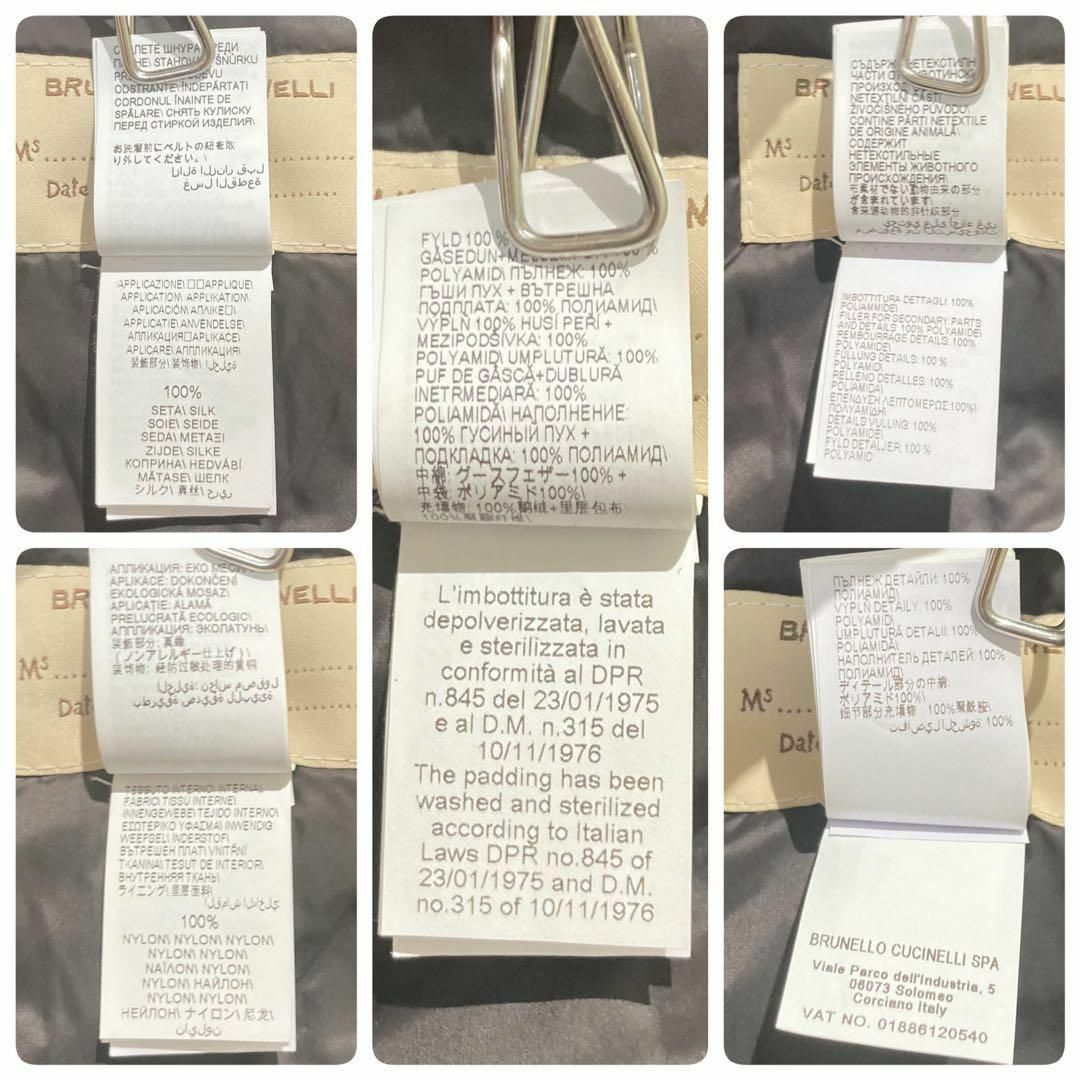 ШНУРА
STAHOVA ŠŇŮRKU
ODSTRANTE\ ÎNDEPĂRTAȚI
CORDONUL ÎNAINTE DE
SPĂLARE\ СНЯТЬ КУЛИСКУ
ПЕРЕД СТИРКОЙ ИЗДЕЛИЯ\
お洗濯前にベルトの紐を取
り外してください。\
ازالة الزنار قبل
غسل القطعة
BRU NELLI
Ms
Date
APPLICAZIONE\ □□APPLIQUE\
APPLICATION\ APPLIKATION\
APLICACIÓN\ ΑΠΛΙΚΕ□\
APPLICATIE\ ANVENDELSE\
АПЛИКАЦИЯ□APLIKACE\
APLICARE\ АППЛИКАЦИЯ\
装飾部分\ 装饰物\ الحلية
100%
SETA\ SILK
SOIE\ SEIDE
SEDA\ ΜΕΤΑΞΙ
ZIJDE\ SILKE
КОПРИНА\ HEDVÁBÍ
MĂTASE\ ШЕЛК
シルク\ 真丝\ حرير
FYLD 100 %
POLYAMID\ ПЪЛНЕЖ: 100%
ГЪШИ ПУХ + ВЪТРЕШНА
ПОДПЛАТА: 100% ПОЛИАМИД\
VÝPLŇ 100% HUSÍ PEŘÍ +
MEZIPODŠÍVKA: 100%
POLYAMID\ UMPLUTURĂ: 100%
PUF DE GÂSCĂ+DUBLURĂ
INETRMEDIARĂ: 100%
POLIAMIDĂ\ НАПОЛНЕНИЕ:
100% ГУСИНЫЙ ПУХ +
ПОДКЛАДКА: 100% ПОЛИАМИД\
中綿: グースフェザー100% +
中袋: ポリアミド100%\
充填物: 100%鹅绒+里层包布:
L'imbottitura è stata
depolverizzata, lavata
e sterilizzata in
conformità al DPR
n.845 del 23/01/1975
e al D.M. n.315 del
10/11/1976
The padding has been
washed and sterilized
according to Italian
Laws DPR no.845 of
23/01/1975 and D.M.
no.315 of 10/11/1976
НЕТЕКСТИЛН
ЧАСТИ
ПРОИЗХОД
NETEXTILNÍ ČÁSTI
ŽIVOČIŠNÉHO PŮVODU\
CONȚINE PĂRȚI NETEXTILE
DE ORIGINE ANIMALĂ\
СОДЕРЖИТ
НЕТЕКСТИЛЬНЫЕ
ЭЛЕМЕНТЫ ЖИВОТНОГО
ПРОИСХОЖДЕНИЯ\
布素材でない動物由来の部分
が含まれています\
含来源动物的非针织部分
BRU
Ms
Date
IMBOTTITURA DETTAGLI: 100%
POLIAMMIDE\
FILLER FOR SECONDARY PARTS
AND DETAILS: 100% POLYAMIDE\
REMBOURRAGE DETAILS: 100%
POLYAMIDE\
FÜLLUNG DETAILS: 100 %
POLYAMID\
RELLENO DETALLES: 100%
POLIAMIDA\
ΕΠΕΝΔΥΣΗ ΛΕΠΤΟΜΕΡΩΣ:100%\
ΠΟΛΥΑΜΙΔΗ\
DETAILS VULLING: 100%
POLYAMIDE\
FYLD DETALJER: 100 %
POLYAMID
АПЛИКАЦИЯ: ЕКО
APLIKACE: DOKONČENÍ
EKOLOGICKÁ MOSAZ\
APLICAȚIE: ALAMĂ
PRELUCRATĂ ECOLOGIC\
АППЛИКАЦИЯ: ЭКОЛАТУНЬ\
装飾部分: 真鍮
(ノンアレルギー仕上げ)\
装饰物: 经防过敏处理的黄铜
الحلية: نحاس مصقول
بطريقة صديقة للبيئة
BR NELLI
Ms
Dat
TESSUTO INTERNO\ INTERNAL
FABRIC\ TISSU INTERNE\
INNENGEWEBE\ TEJIDO INTERNO\
ΕΣΩΤΕΡΙΚΟ ΥΦΑΣΜΑ\ INWENDIG
WEEFSEL\ INDERSTOF\
ВЪТРЕШЕН ПЛАТ\ VNITŘNÍ
TKANINA\ TESUT DE INTERIOR\
ВНУТРЕННЯЯ ТКАНЬ\
ライニング\ 里层面料\
القماش الداخلي
100%
NYLON\ NYLON\ NYLON\
NYLON\ NYLON\
ΝΑΪΛΟΝ\ NYLON\
NYLON\ НАЙЛОН\
NYLON\ NYLON\
НЕЙЛОН\ ナイロン\ 尼龙\
نايلون
ПЪЛНЕЖ ДЕТАЙЛИ: 100%
ПОЛИАМИД\
VÝPLŇ DETAILY: 100%
POLYAMID\
UMPLUTURĂ DETALII: 100%
POLIAMIDĂ\
НАПОЛНИТЕЛЬ ДЕТАЛЕЙ: 100%
ПОЛИАМИД\
ディテール部分の中綿:
ポリアミド100%\
细节部分充填物: 100%聚酰胺\
Ms
Date
BRUNELLO CUCINELLI SPA
Viale Parco dell'Industria, 5
06073 Solomeo
Corciano Italy
VAT NO. 01886120540